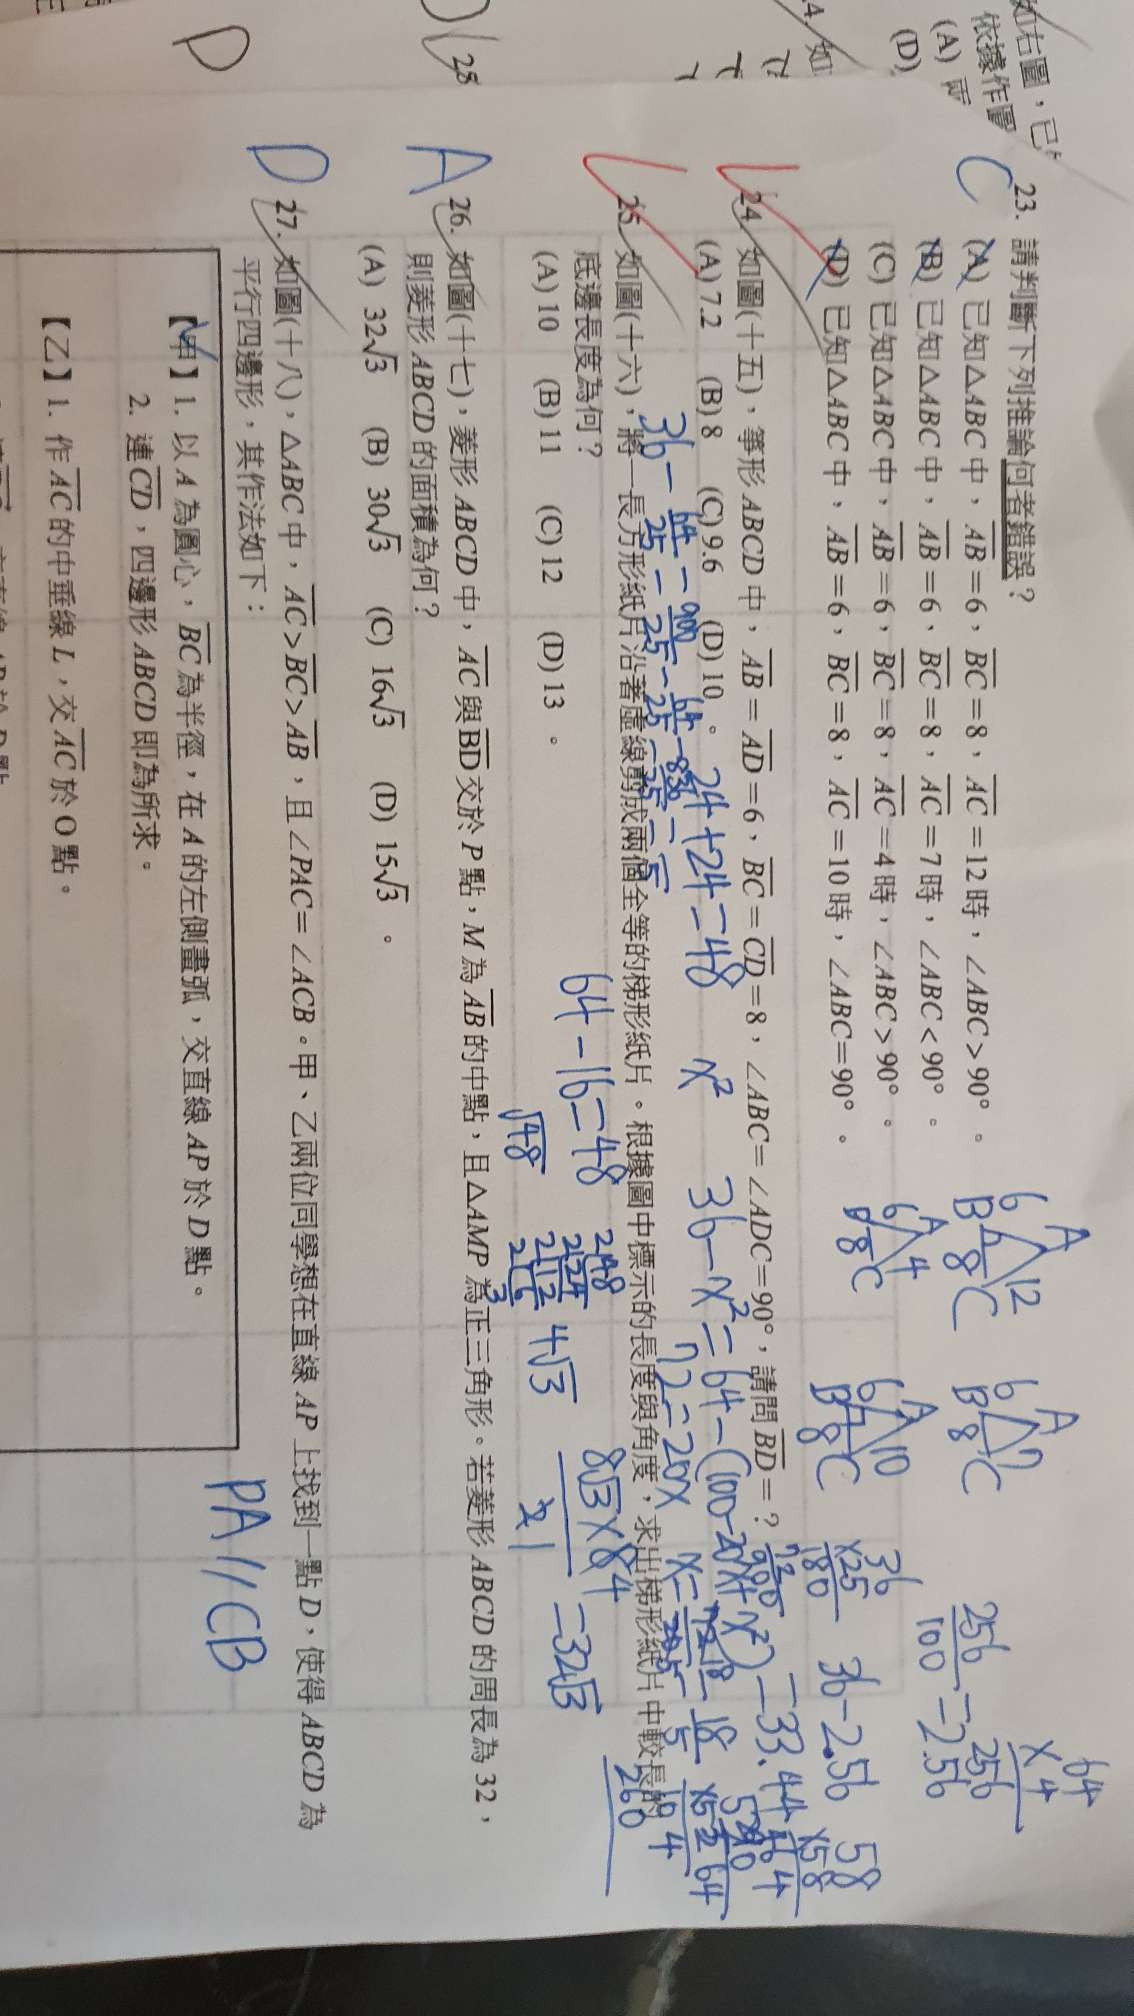 如右圖，已
依據作圖
(A) 兩
(D)
4. 如
D
25
C
23. 請判斷下列推論何者錯誤？
(A) 已知△ABC 中，AB=6，BC=8，AC=12 時，∠ABC>90°。
(B) 已知△ABC 中，AB=6，BC=8，AC=7 時，∠ABC<90°。
(C) 已知△ABC 中，AB=6，BC=8，AC=4 時，∠ABC>90°。
(D) 已知△ABC 中，AB=6，BC=8，AC=10 時，∠ABC=90°。
24. 如圖(十五)，箏形 ABCD 中，AB=AD=6，BC=CD=8，∠ABC=∠ADC=90°，請問BD=？
(A) 7.2 (B) 8 (C) 9.6 (D) 10。
25. 如圖(十六)，將一長方形紙片沿著虛線剪成兩個全等的梯形紙片。根據圖中標示的長度與角度，求出梯形紙片中較長的
底邊長度為何？
(A) 10 (B) 11 (C) 12 (D) 13。
A
26. 如圖(十七)，菱形 ABCD 中，AC與BD交於 P 點，M 為AB的中點，且△AMP 為正三角形。若菱形 ABCD 的周長為 32，
則菱形 ABCD 的面積為何？
(A) 32√3 (B) 30√3 (C) 16√3 (D) 15√3。
D
27. 如圖(十八)，△ABC 中，AC>BC>AB，且∠PAC=∠ACB。甲、乙兩位同學想在直線 AP 上找到一點 D，使得 ABCD 為
平行四邊形，其作法如下：
【甲】1. 以 A 為圓心，BC為半徑，在 A 的左側畫弧，交直線 AP 於 D 點。
2. 連CD，四邊形 ABCD 即為所求。
【乙】1. 作AC的中垂線 L，交AC於 O 點。
PA//CB
6 A 12
B 8 C
6 A 7
B 8 C
6 A 4
B 8 C
6 A 10
B 8 C
64
×4
256
256/100=2.56
36
×25
180
36-2.56
=33.44
58
×58
24+24=48
x²
36-x²=64-(100-20x+x²)
72=20x
64-16=48
√48
2|48
2|24
2|12
2|6
3
4√3
8√3×8 4
=32√3